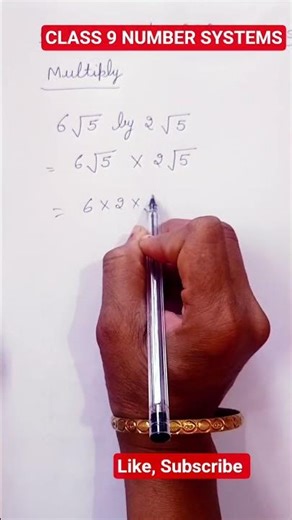 CLASS 9 NUMBER SYSTEMS
Multiply
6√5 by 2√5
= 6√5 × 2√5
= 6 × 2 ×
Like, Subscribe